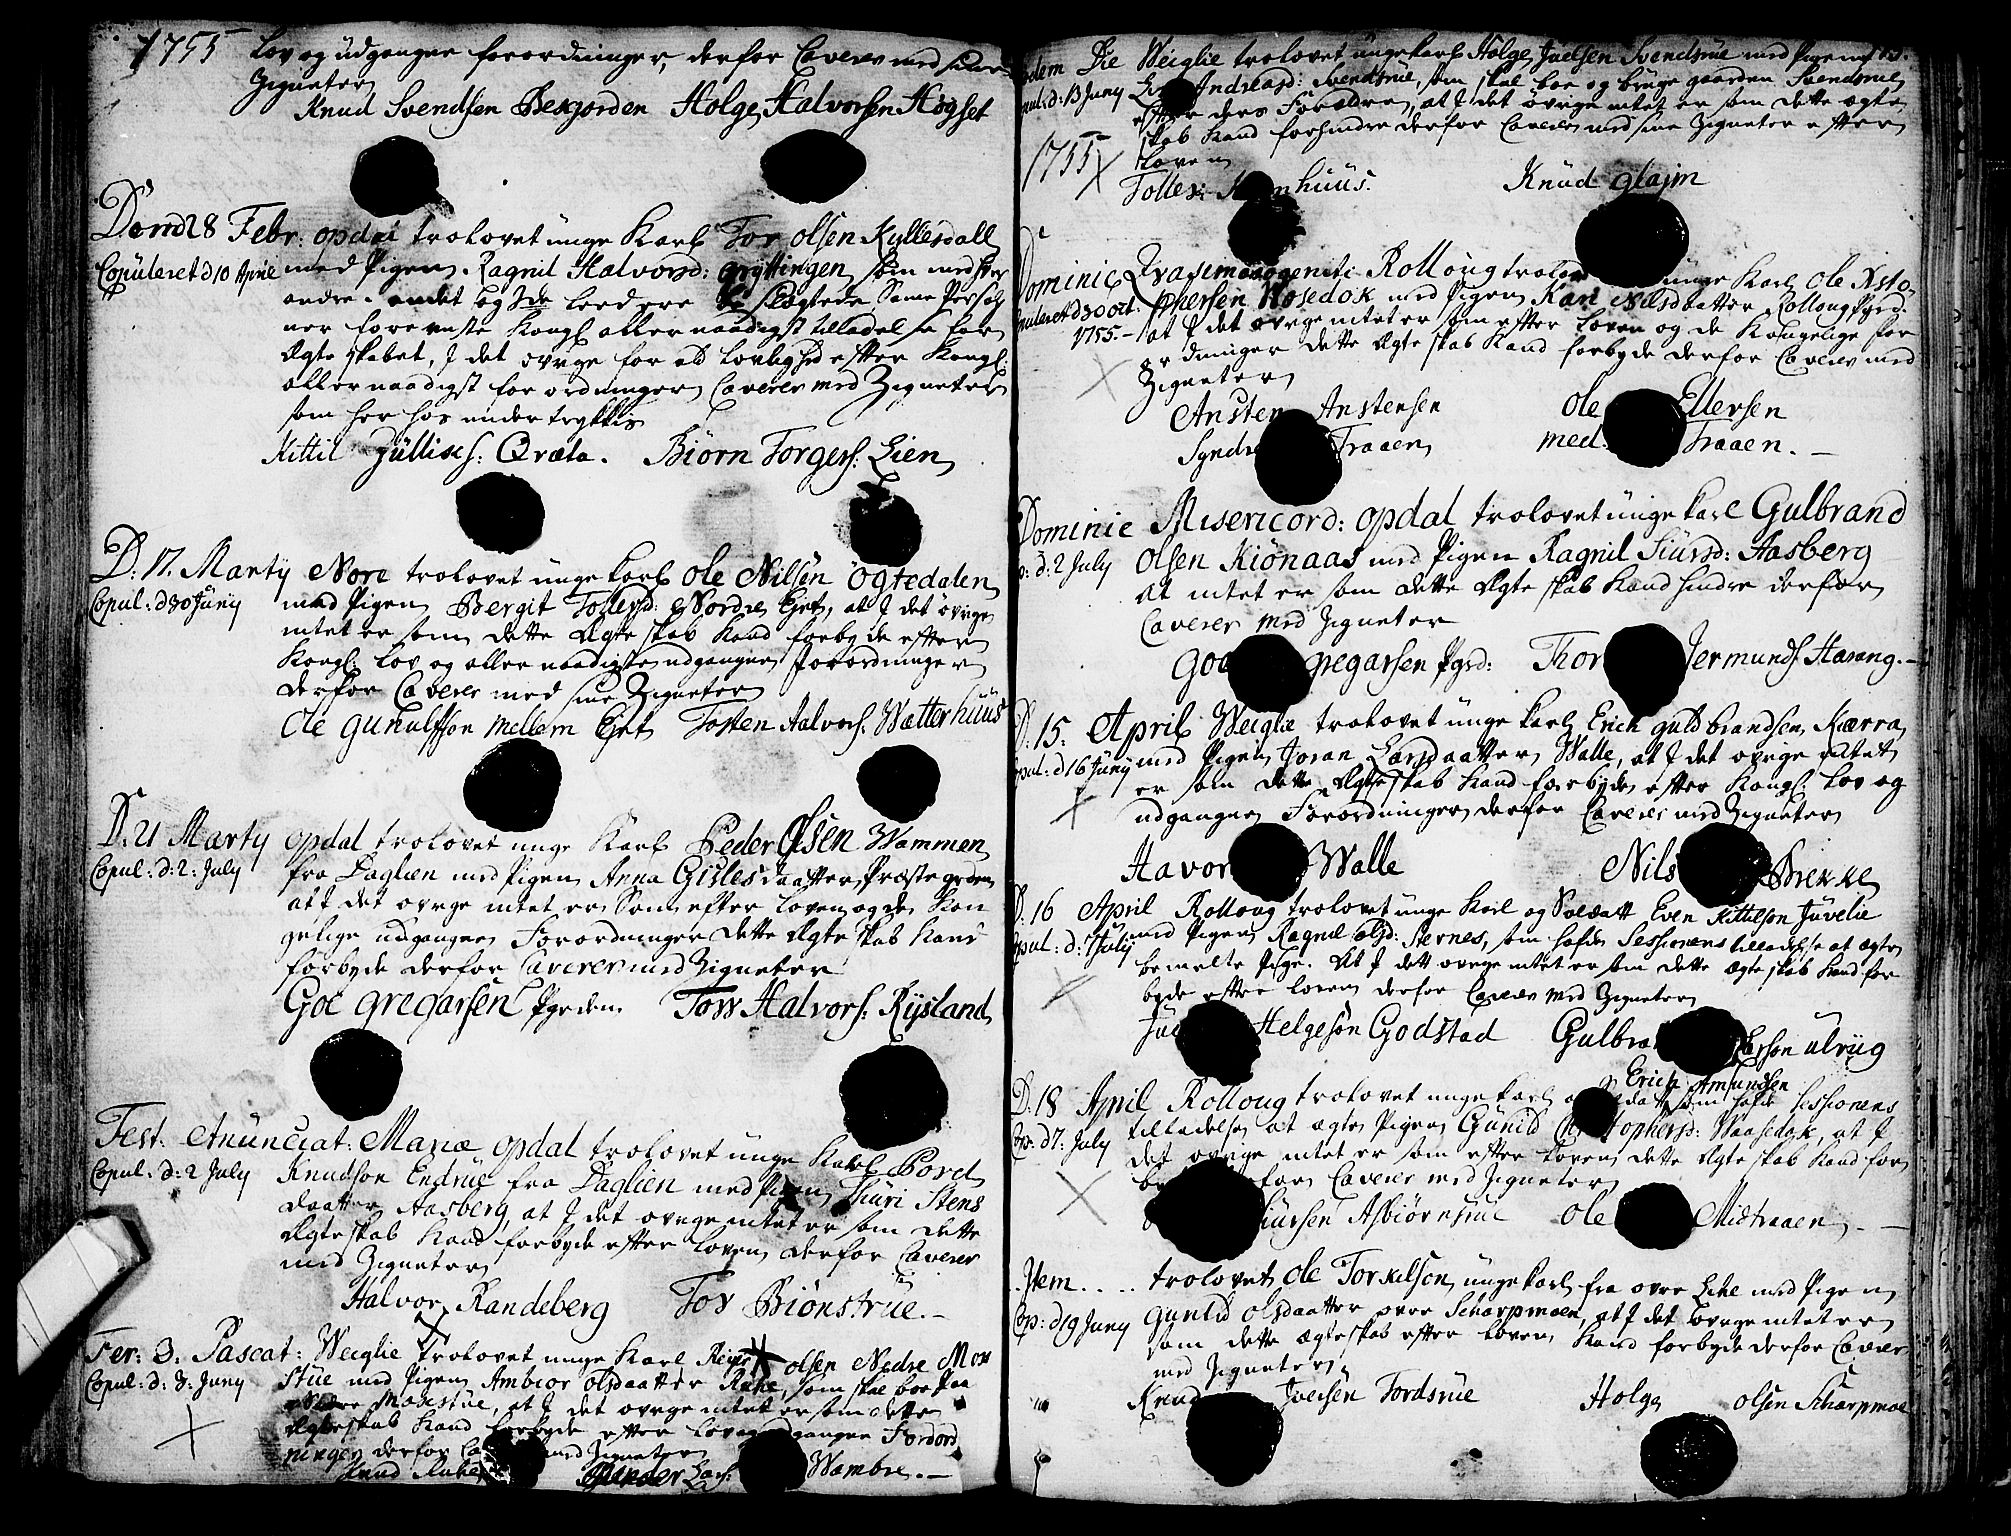 1755
Lov og udgangne forordninger, derfor Caverer med
Zigneter
Knud Svendsen Bekjorden Holge Halvorsen Høgset
Dend 28 Febr: opdal trolovet unge Karl Tor olsen Kyllesdall
Copuleret d 10 April med Pigen Ragnil Halvorsd: Gryttingen, som med hver
andre i andet og 3de leed ere
ner foreviiste Kongl allernaadigst tilladelse for
Ægteskabet, J det øvrige for al Lovlighed efter Kongl:
allernaadigst forordninger Caverer med Zigneter
som her hos undertrykkis
Kittil Gullics: Qræta. Biørn Torgers: Lien
D: 17. Marty Nore trolovet unge karl Ole Nilsen Ogtedalen
Copul: d 30 Juny med Pigen Bergit Tollefsd: Nordre Ejet, at J det øvrige
intet er som dette Ægteskab kand forbyde efter
Kongl: Lov og allernaadigste udgangne Forordninger
derfor Caverer med sine Zigneter
Ole Gunulfson mellem Ejet Tosten Halvors: Wætterhuus
D: 21 Marty opdal trolovet unge Karl Peder Olsen Wammen
Copul: d: 2: July fra Daglien med Pigen Anna Gislesdaatter Præstegrden
at J det øvrige intet er Som efter loven og de Kon
gelige udgangne Forordninger dette Ægteskab kand
forbyde derfor Caverer med Zigneter
Goe gregarsen Pgrden Tow Halvors: Rysland
Fest: Anunciat: Mariæ opdal trolovet unge Karl Pord
Copul: d: 2 July Knudson Endrue fra Daglien med Pigen Thuri Stens
daatter Aasberg, at J det øvrige intet er som dette
Ægteskab kand forbyde efter loven derfor Caverer
med Zigneter
Halvor Randeberg Tov Biønstrue.
Fer: 3: Pascat: Weiglie trolovet unge Karl olsen Nedre Mon
Copul: d: 3: Juny stue med Pigen Ambior olsdaatter Ruke, som skal boe paa
Nedre Monestue, at J det øvrige intet er som dette
Ægteskab kand forbyde efter lov og udgangne Forord
ninger derfor med Zigneter
Knud Ruke Lars: Wambre.
Eodem Die Weiglie trolovet unge karl Holge Juelsen Svendsrue med Pigen
Copul: d: 13 Juny Andreasd: Svendsrue, som skal boe og bruge gaarden Svendsrue
efter ders Forældre, at J det øvrige intet er som dette ægte
skab kand forhindre derfor Caverer med sine Zigneter efter
1755 Loven
Tollev: huus. Knud glajm
Dominic Qvasimodogeniti Rolloug trolovet unge Karl Ole Xsto
Copuleret d 30 oct: phersen Wosedok med Pigen Kari Nilsdaatter Rolloug Pgrd:
1755.- at J det øvrige intet er som efter loven og de Kongelige for
ordninger dette Ægteskab kand forbyde derfor Caverer med
Zigneter
Ansten Anstensen Ole Ellersen
Syndre Traaen med. Traaen.
Dominic Misericord: opdal trolovet unge karl Gulbrand
d: 2 July Olsen Kiønaas med Pigen Ragnil Siursd: Aasberg
at intet er som dette Ægteskab kand hindre derfor
Caverer med Zigneter
Goe gregarsen Pgrd: Thor Jermunds Harang.
D: 15: April Weiglie trolovet unge karl Erich guldbrandsen Kiærra
Copul: d 16 Juny med Pigen Joran Larsdaatter Walle, at J det øvrige intet
er som dette Ægteskab kand forbyde efter Kongl: lov og
udgangne Forordninger derfor Caverer med Zigneter
Havor Walle Nils Brekke
D: 16 April Rolloug trolovet unge karl og Soldatt Even Kittilson Juvelie
Copul: d: 7 July med Pigen Ragnil olsd: Sternes, som hafde Sessionens tilladelse at ægte
bemelte Pige. At J dett øvrige intet er som dette ægteskab kand for
byde efter loven derfor Caverer med Zigneter
Helgesøn Godstad Gulbra ulrug
Erich Amundsen
D: 18 April Rolloug trolovet unge karl som hafde Sessionens
Cop: d 7: July tilladelse at ægte Pigen Gunild Christophersd: Waasedok, at J
det øvrige intet er som efter loven dette Ægteskab kand for
Caverer med Zigneter
Siursen Asbiørnsrue Ole Midtraaen
Item.... trolovet Ole Torkilson, unge karl fra øvre Like med Pigen
Cop: d 19 Juny Gunild olsdaatter øvre Scharpmoen, at J det øvrige intet er
som dette ægteskab efter loven kand forbyde derfor Caverer
med Zigneter
Knud Juelsen Tordsrue Holge olsen Scharpmoe